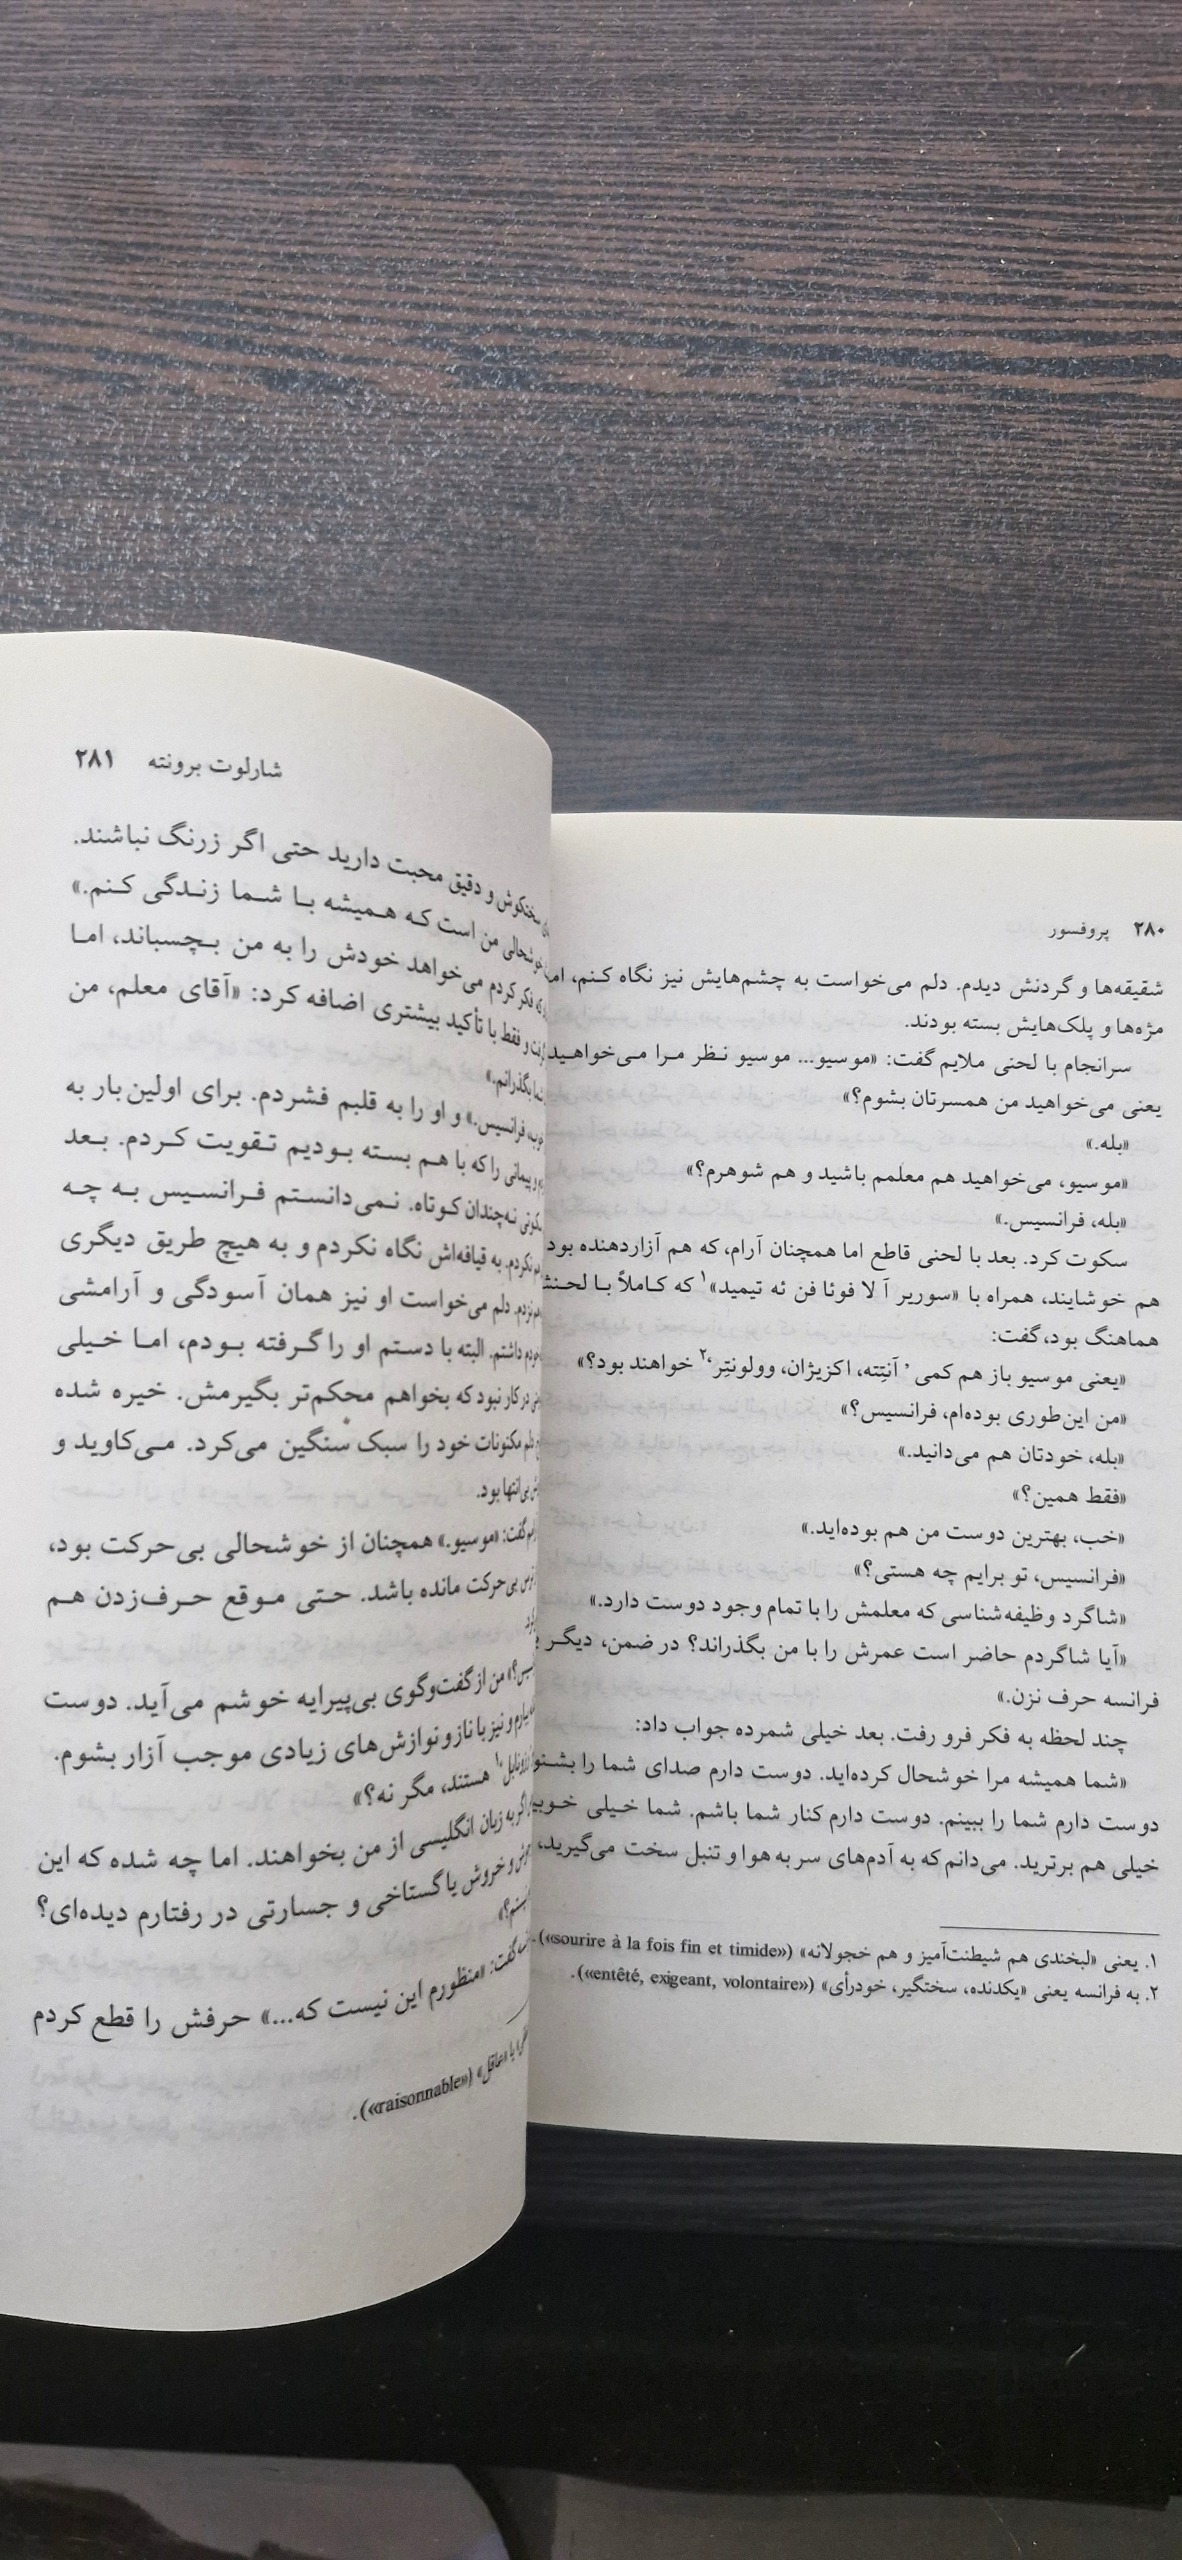 ۲۸۰ پروفسور
شقیقه‌ها و گردنش دیدم. دلم می‌خواست به چشم‌هایش نیز نگاه کنم، اما
مژه‌ها و پلک‌هایش بسته بودند.
سرانجام با لحنی ملایم گفت: «موسیو... موسیو نظر مرا می‌خواهید
یعنی می‌خواهید من همسرتان بشوم؟»
«بله.»
«موسیو، می‌خواهید هم معلمم باشید و هم شوهرم؟»
«بله، فرانسیس.»
سکوت کرد. بعد با لحنی قاطع اما همچنان آرام، که هم آزاردهنده بود
هم خوشایند، همراه با «سوریر آ لا فوئا فن ئه تیمید»۱ که کاملاً با لحنش
هماهنگ بود، گفت:
«یعنی موسیو باز هم کمی ’آنتِته، اکزیژان، وولونتِر‘۲ خواهند بود؟»
«من این‌طوری بوده‌ام، فرانسیس؟»
«بله، خودتان هم می‌دانید.»
«فقط همین؟»
«خب، بهترین دوست من هم بوده‌اید.»
«فرانسیس، تو برایم چه هستی؟»
«شاگرد وظیفه‌شناسی که معلمش را با تمام وجود دوست دارد.»
«آیا شاگردم حاضر است عمرش را با من بگذراند؟ در ضمن، دیگر
فرانسه حرف نزن.»
چند لحظه به فکر فرو رفت. بعد خیلی شمرده جواب داد:
«شما همیشه مرا خوشحال کرده‌اید. دوست دارم صدای شما را بشنوم
دوست دارم شما را ببینم. دوست دارم کنار شما باشم. شما خیلی خوبید
خیلی هم برترید. می‌دانم که به آدم‌های سربه‌هوا و تنبل سخت می‌گیرید،
۱. یعنی «لبخندی هم شیطنت‌آمیز و هم خجولانه» («sourire à la fois fin et timide»).
۲. به فرانسه یعنی «یکدنده، سختگیر، خودرأی» («entêté, exigeant, volontaire»).
شارلوت برونته ۲۸۱
سختکوش و دقیق محبت دارید حتی اگر زرنگ نباشند.
خوشحالی من است که همیشه با شما زندگی کنم.»
که فکر کردم می‌خواهد خودش را به من بچسباند، اما
و فقط با تأکید بیشتری اضافه کرد: «آقای معلم، من
بگذرانم.»
فرانسیس.» و او را به قلبم فشردم. برای اولین‌بار به
و پیمانی را که با هم بسته بودیم تقویت کردم. بعد
نه‌چندان کوتاه. نمی‌دانستم فرانسیس به چه
نکردم. به قیافه‌اش نگاه نکردم و به هیچ طریق دیگری
نزدم. دلم می‌خواست او نیز همان آسودگی و آرامشی
داشتم. البته با دستم او را گرفته بودم، اما خیلی
در کار نبود که بخواهم محکم‌تر بگیرمش. خیره شده
دلم مکنونات خود را سبک سنگین می‌کرد. می‌کاوید و
بی‌انتها بود.
گفت: «موسیو.» همچنان از خوشحالی بی‌حرکت بود،
بی‌حرکت مانده باشد. حتی موقع حرف‌زدن هم
من از گفت‌وگوی بی‌پیرایه خوشم می‌آید. دوست
و نیز با ناز و نوازش‌های زیادی موجب آزار بشوم.
هستند، مگر نه؟»
اگر به زبان انگلیسی از من بخواهند. اما چه شده که این
و خروش یا گستاخی و جسارتی در رفتارم دیده‌ای؟
گفت: «منظورم این نیست که...» حرفش را قطع کردم
یا «عاقل» («raisonnable»).